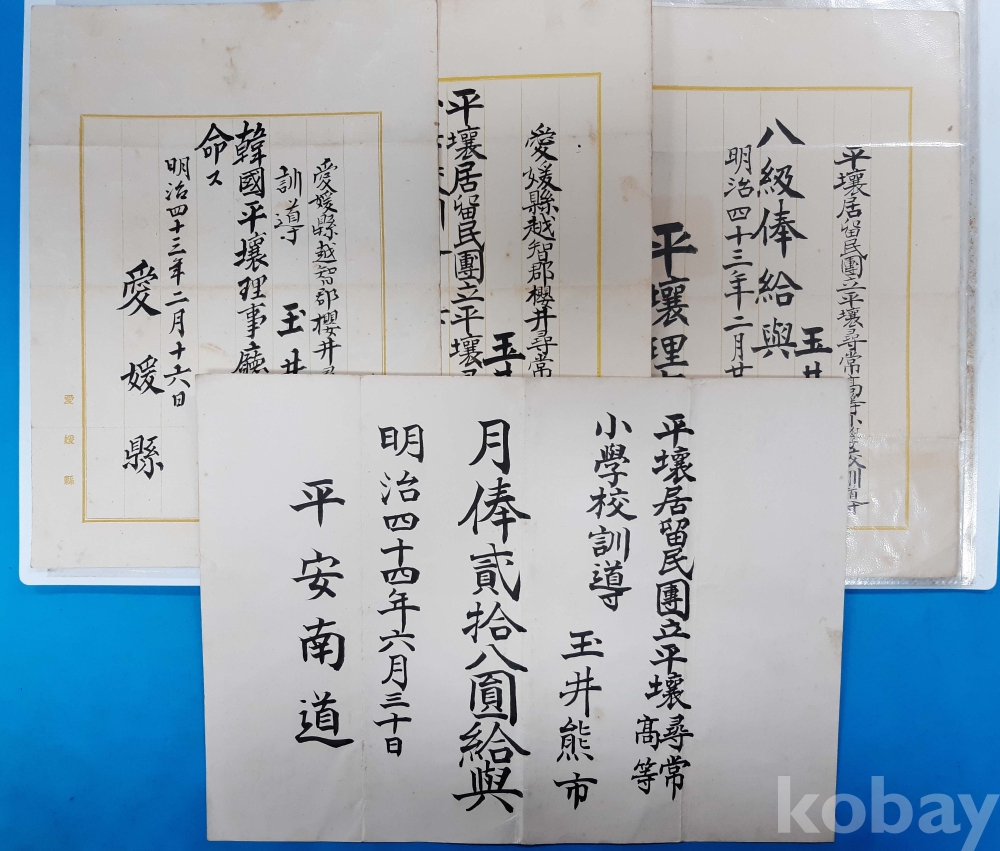 愛媛縣越智郡櫻井尋
訓導
玉井
韓國平壤理事廳
命ス
明治四十三年二月十六日
愛媛縣
愛媛縣
愛媛縣越智郡櫻井尋常
玉井
平壤居留民團立平壤尋
平壤居留民團立平壤尋常高等小學校訓導
玉井
八級俸給與
明治四十三年二月廿
平壤理
平壤居留民團立平壤尋常高等
小學校訓導
玉井熊市
月俸貳拾八圓給與
明治四十四年六月三十日
平安南道
kobay